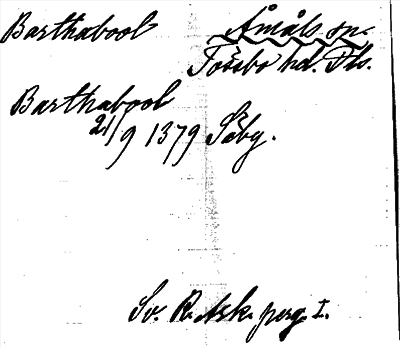 Barthabool Åmåls sn.
Tössbo hd. Dls.
Barthabool
21/9 1379 Säby.
Sv. R. Ark. perg. I.